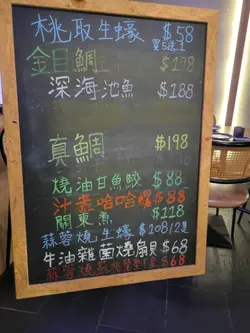 桃取生蠔 $58
買5送1
金目鯛 $198
深海池魚 $188
真鯛 $198
燒油甘魚鮫 $88
汁煮哈哈螺 $88
關東煮 $118
蒜蓉燒生蠔 $108 12隻
牛油雜菌燒扇貝 $68
蒜蓉燒 $68